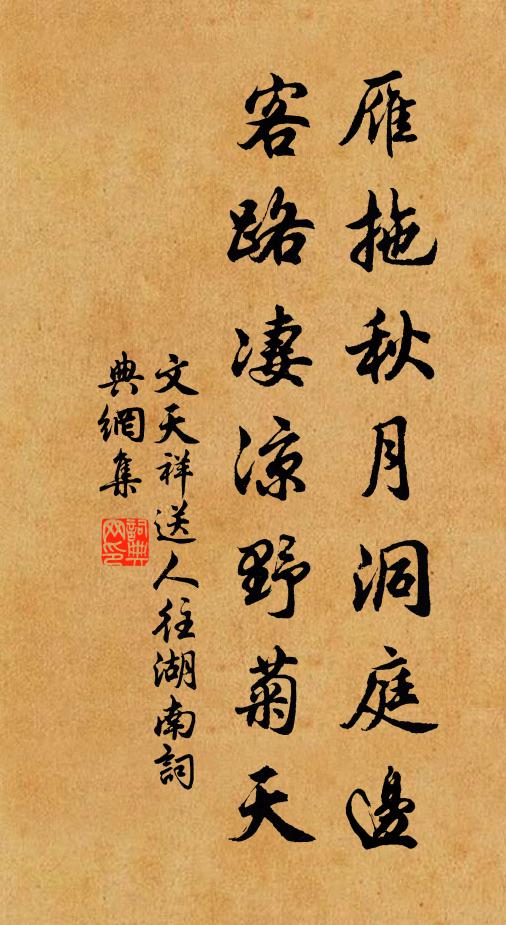 雁拖秋月洞庭邊
客路凄涼野菊天
文天祥送人往湖南詞
典網集
詞典網印